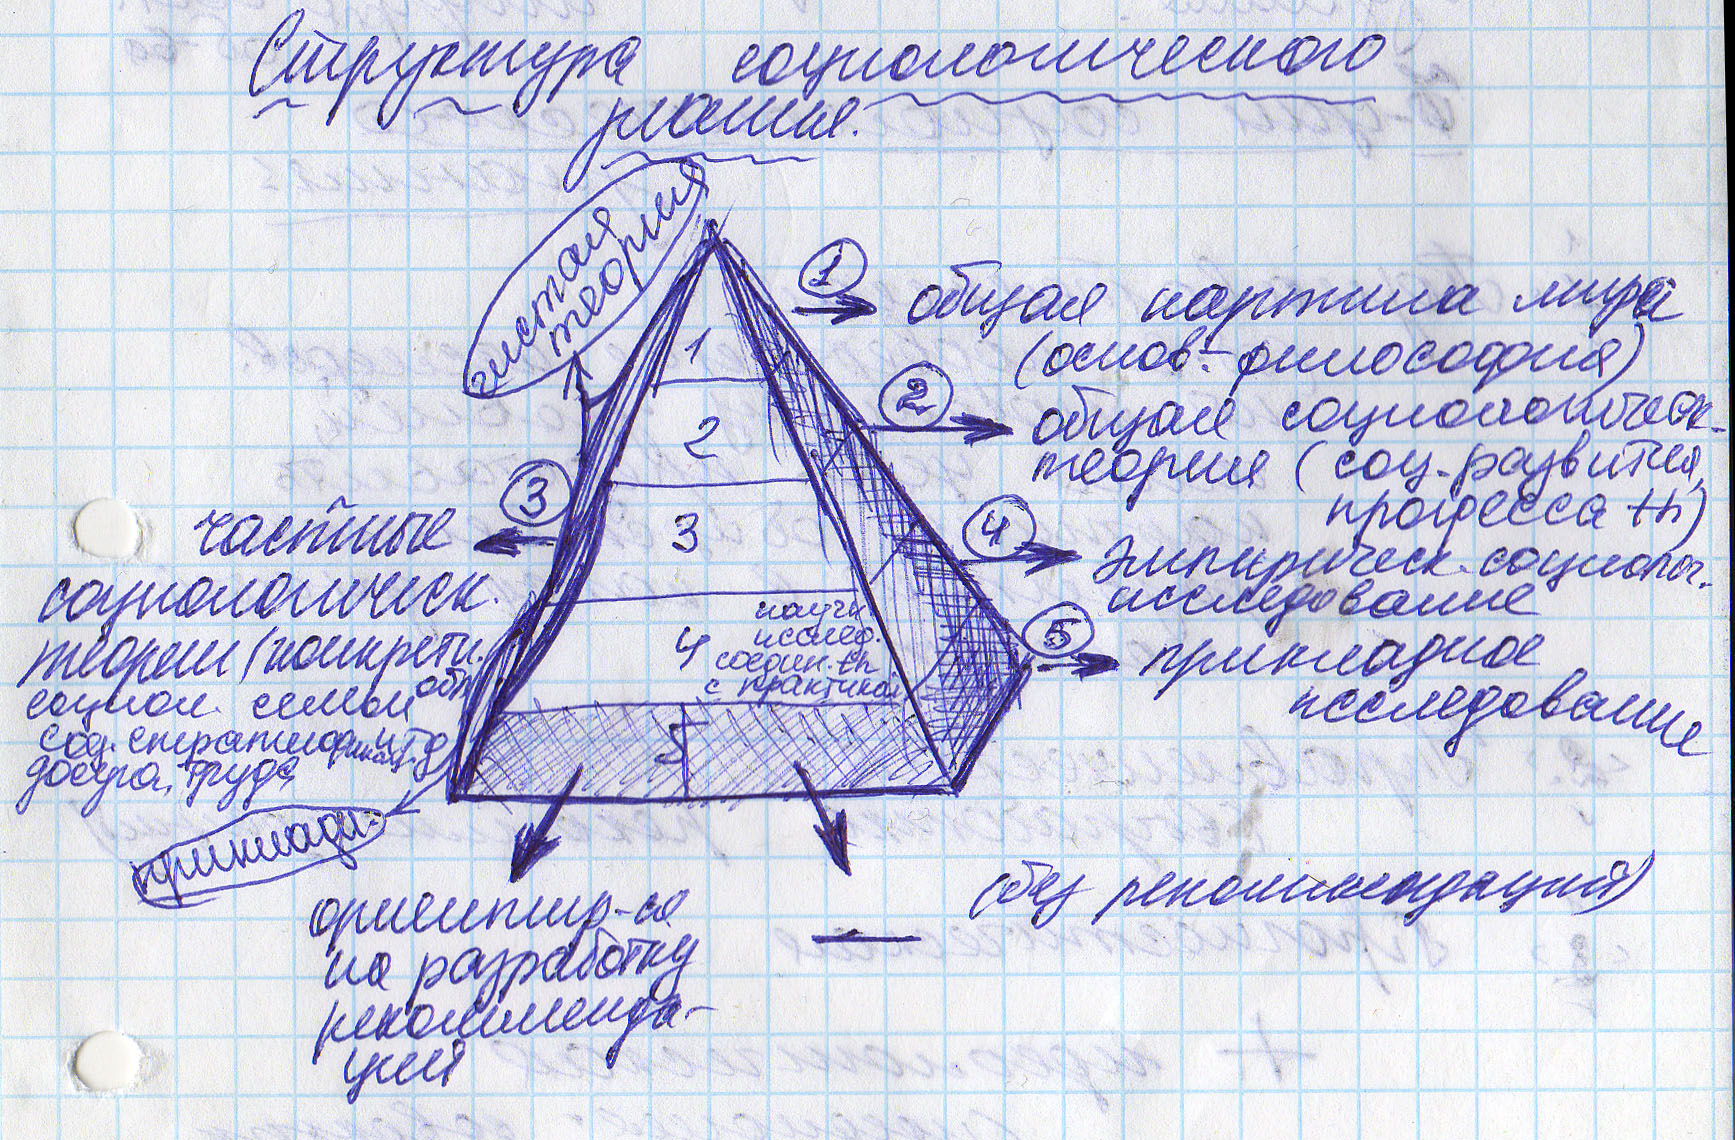 Структура социологического
знания.
чистая
теория
1
общая картина мира
(основ.- философия)
2
общая социологическ.
теория (соц. развития,
прогресса th)
3
частные
социологическ.
теории (конкретн.
социол. семьи обл
соц. стратификац. и т.д
досуга, труда
приклади.
4
эмпирическ. социолог.
исследование
5
прикладное
исследование
1
2
3
4
научн.
исслед.
соедин. th
с практикой
5
ориентир-ся
на разработку
рекоменда-
ций
—
(без рекомендаций)